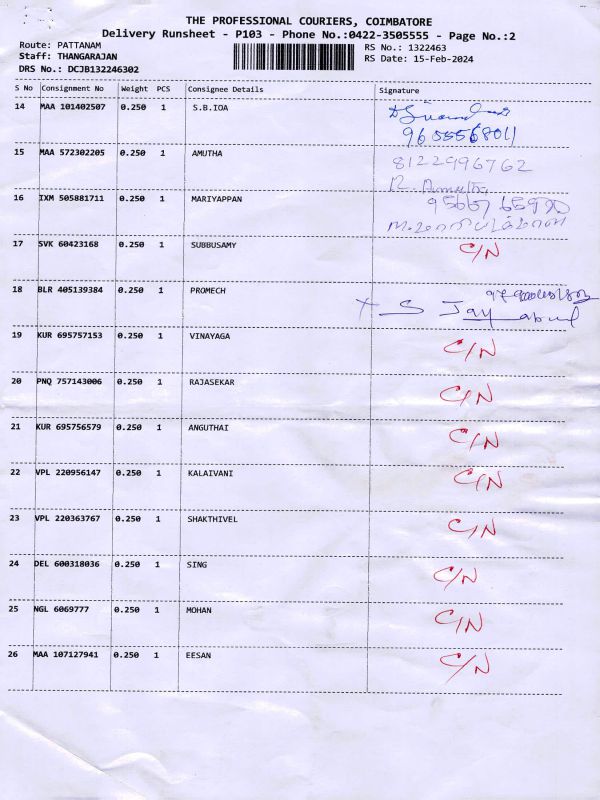 THE PROFESSIONAL COURIERS, COIMBATORE
Delivery Runsheet - P103 - Phone No.:0422-3505555 - Page No.:2
Route: PATTANAM
RS No.: 1322463
Staff: THANGARAJAN
RS Date: 15-Feb-2024
DRS No.: DCJB132246302
S No Consignment No Weight PCS Consignee Details Signature
14 MAA 101402507 0.250 1 S.B.IOA
15 MAA 572302205 0.250 1 AMUTHA 8122996762
16 IXM 505881711 0.250 1 MARIYAPPAN
17 SVK 60423168 0.250 1 SUBBUSAMY C/N
18 BLR 405139384 0.250 1 PROMECH
19 KUR 695757153 0.250 1 VINAYAGA C/N
20 PNQ 757143006 0.250 1 RAJASEKAR C/N
21 KUR 695756579 0.250 1 ANGUTHAI C/N
22 VPL 220956147 0.250 1 KALAIVANI C/N
23 VPL 220363767 0.250 1 SHAKTHIVEL C/N
24 DEL 600318036 0.250 1 SING C/N
25 NGL 6069777 0.250 1 MOHAN C/N
26 MAA 107127941 0.250 1 EESAN C/N